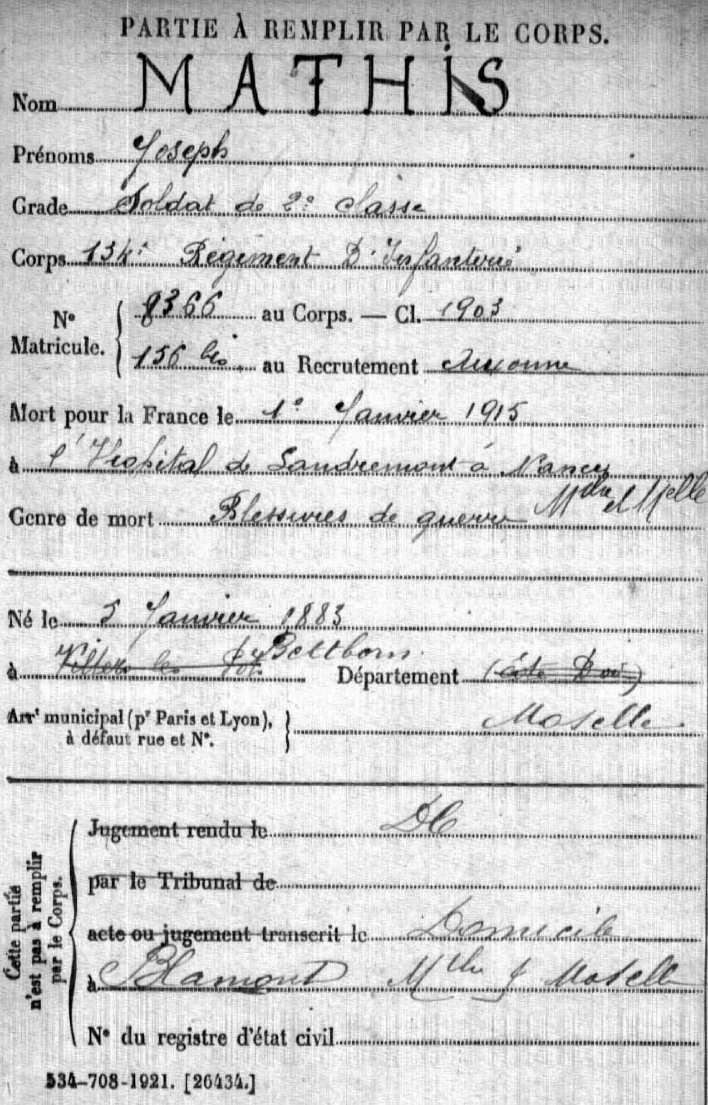 PARTIE À REMPLIR PAR LE CORPS.
Nom MATHIS
Prénoms Joseph
Grade Soldat de 2e classe
Corps 134e Régiment D'Infanterie
N° Matricule. 8366 au Corps. — Cl. 1903
156 bis au Recrutement Auxonne
Mort pour la France le 1e Janvier 1915
à l'Hopital de Landremont à Nancy
Mthe et Melle
Genre de mort Blessures de guerre
Né le 5 Janvier 1883
Bettborn
à Villers les Pots Département (Côte D'or)
Arrt municipal (pr Paris et Lyon), à défaut rue et N°. Moselle
Cette partie n'est pas à remplir par le Corps.
Jugement rendu le DC
par le Tribunal de
acte ou jugement transcrit le Domicile
à Blamont Mthe & Moselle
N° du registre d'état civil
534-708-1921. [26434.]